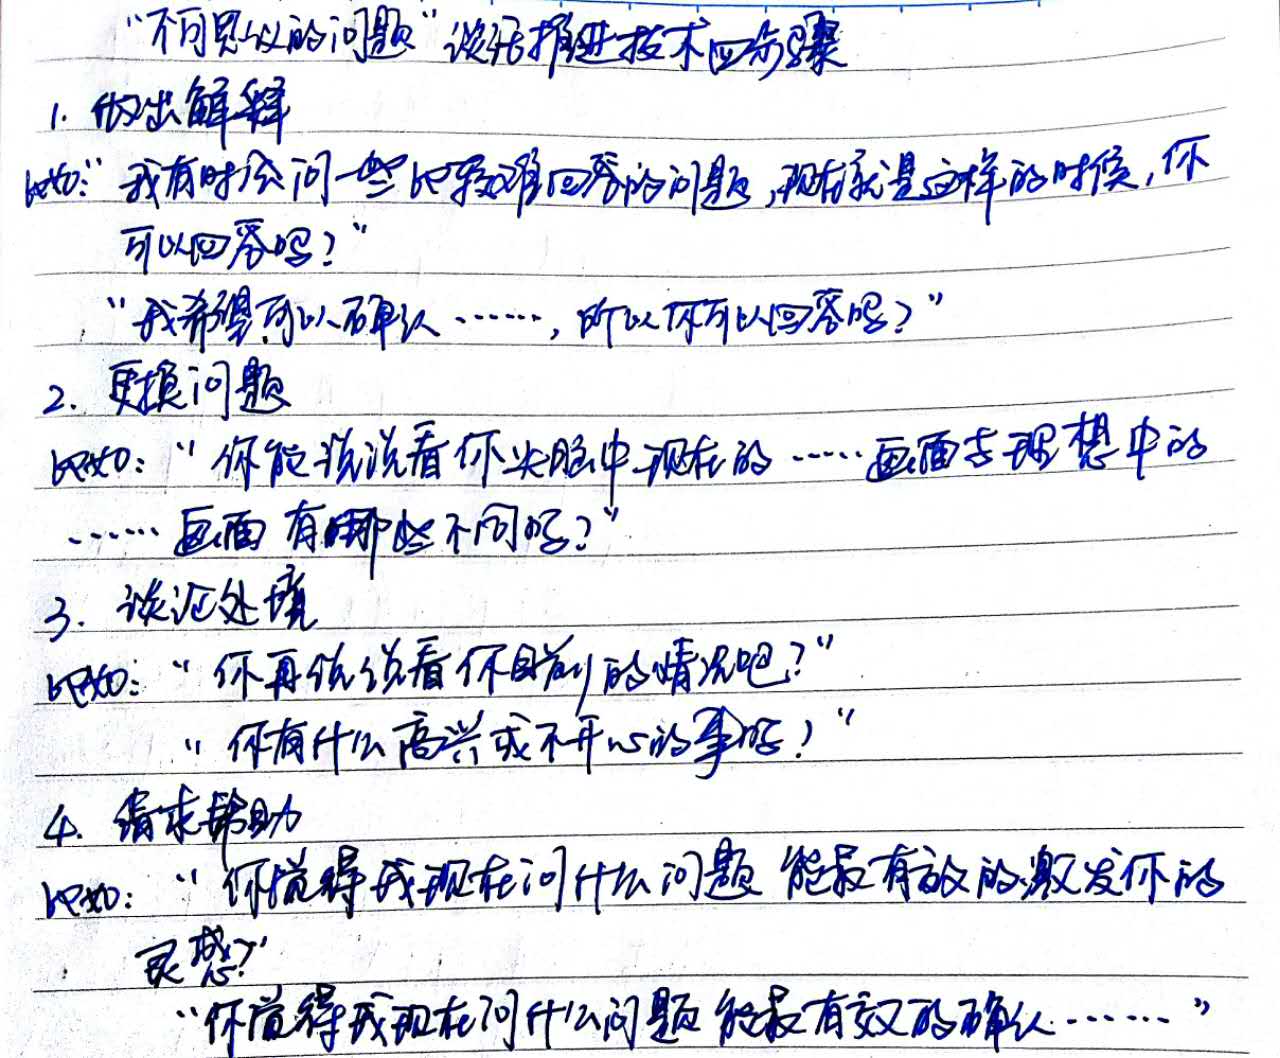 “不可思议的问题”谈话推进技术四步骤
1. 做出解释
比如:“我有时会问一些比较难回答的问题,现在就是这样的时候,你
可以回答吗?”
“我希望可以确认……,所以你可以回答吗?”
2. 更换问题
比如:“你能说说看你头脑中现在的……画面与理想中的
……画面有哪些不同吗?”
3. 谈论处境
比如:“你再说说看你目前的情况吧?”
“你有什么高兴或不开心的事吗?”
4. 请求帮助
比如:“你觉得我现在问什么问题能最有效的激发你的
灵感?”
“你觉得我现在问什么问题能最有效的确认……”